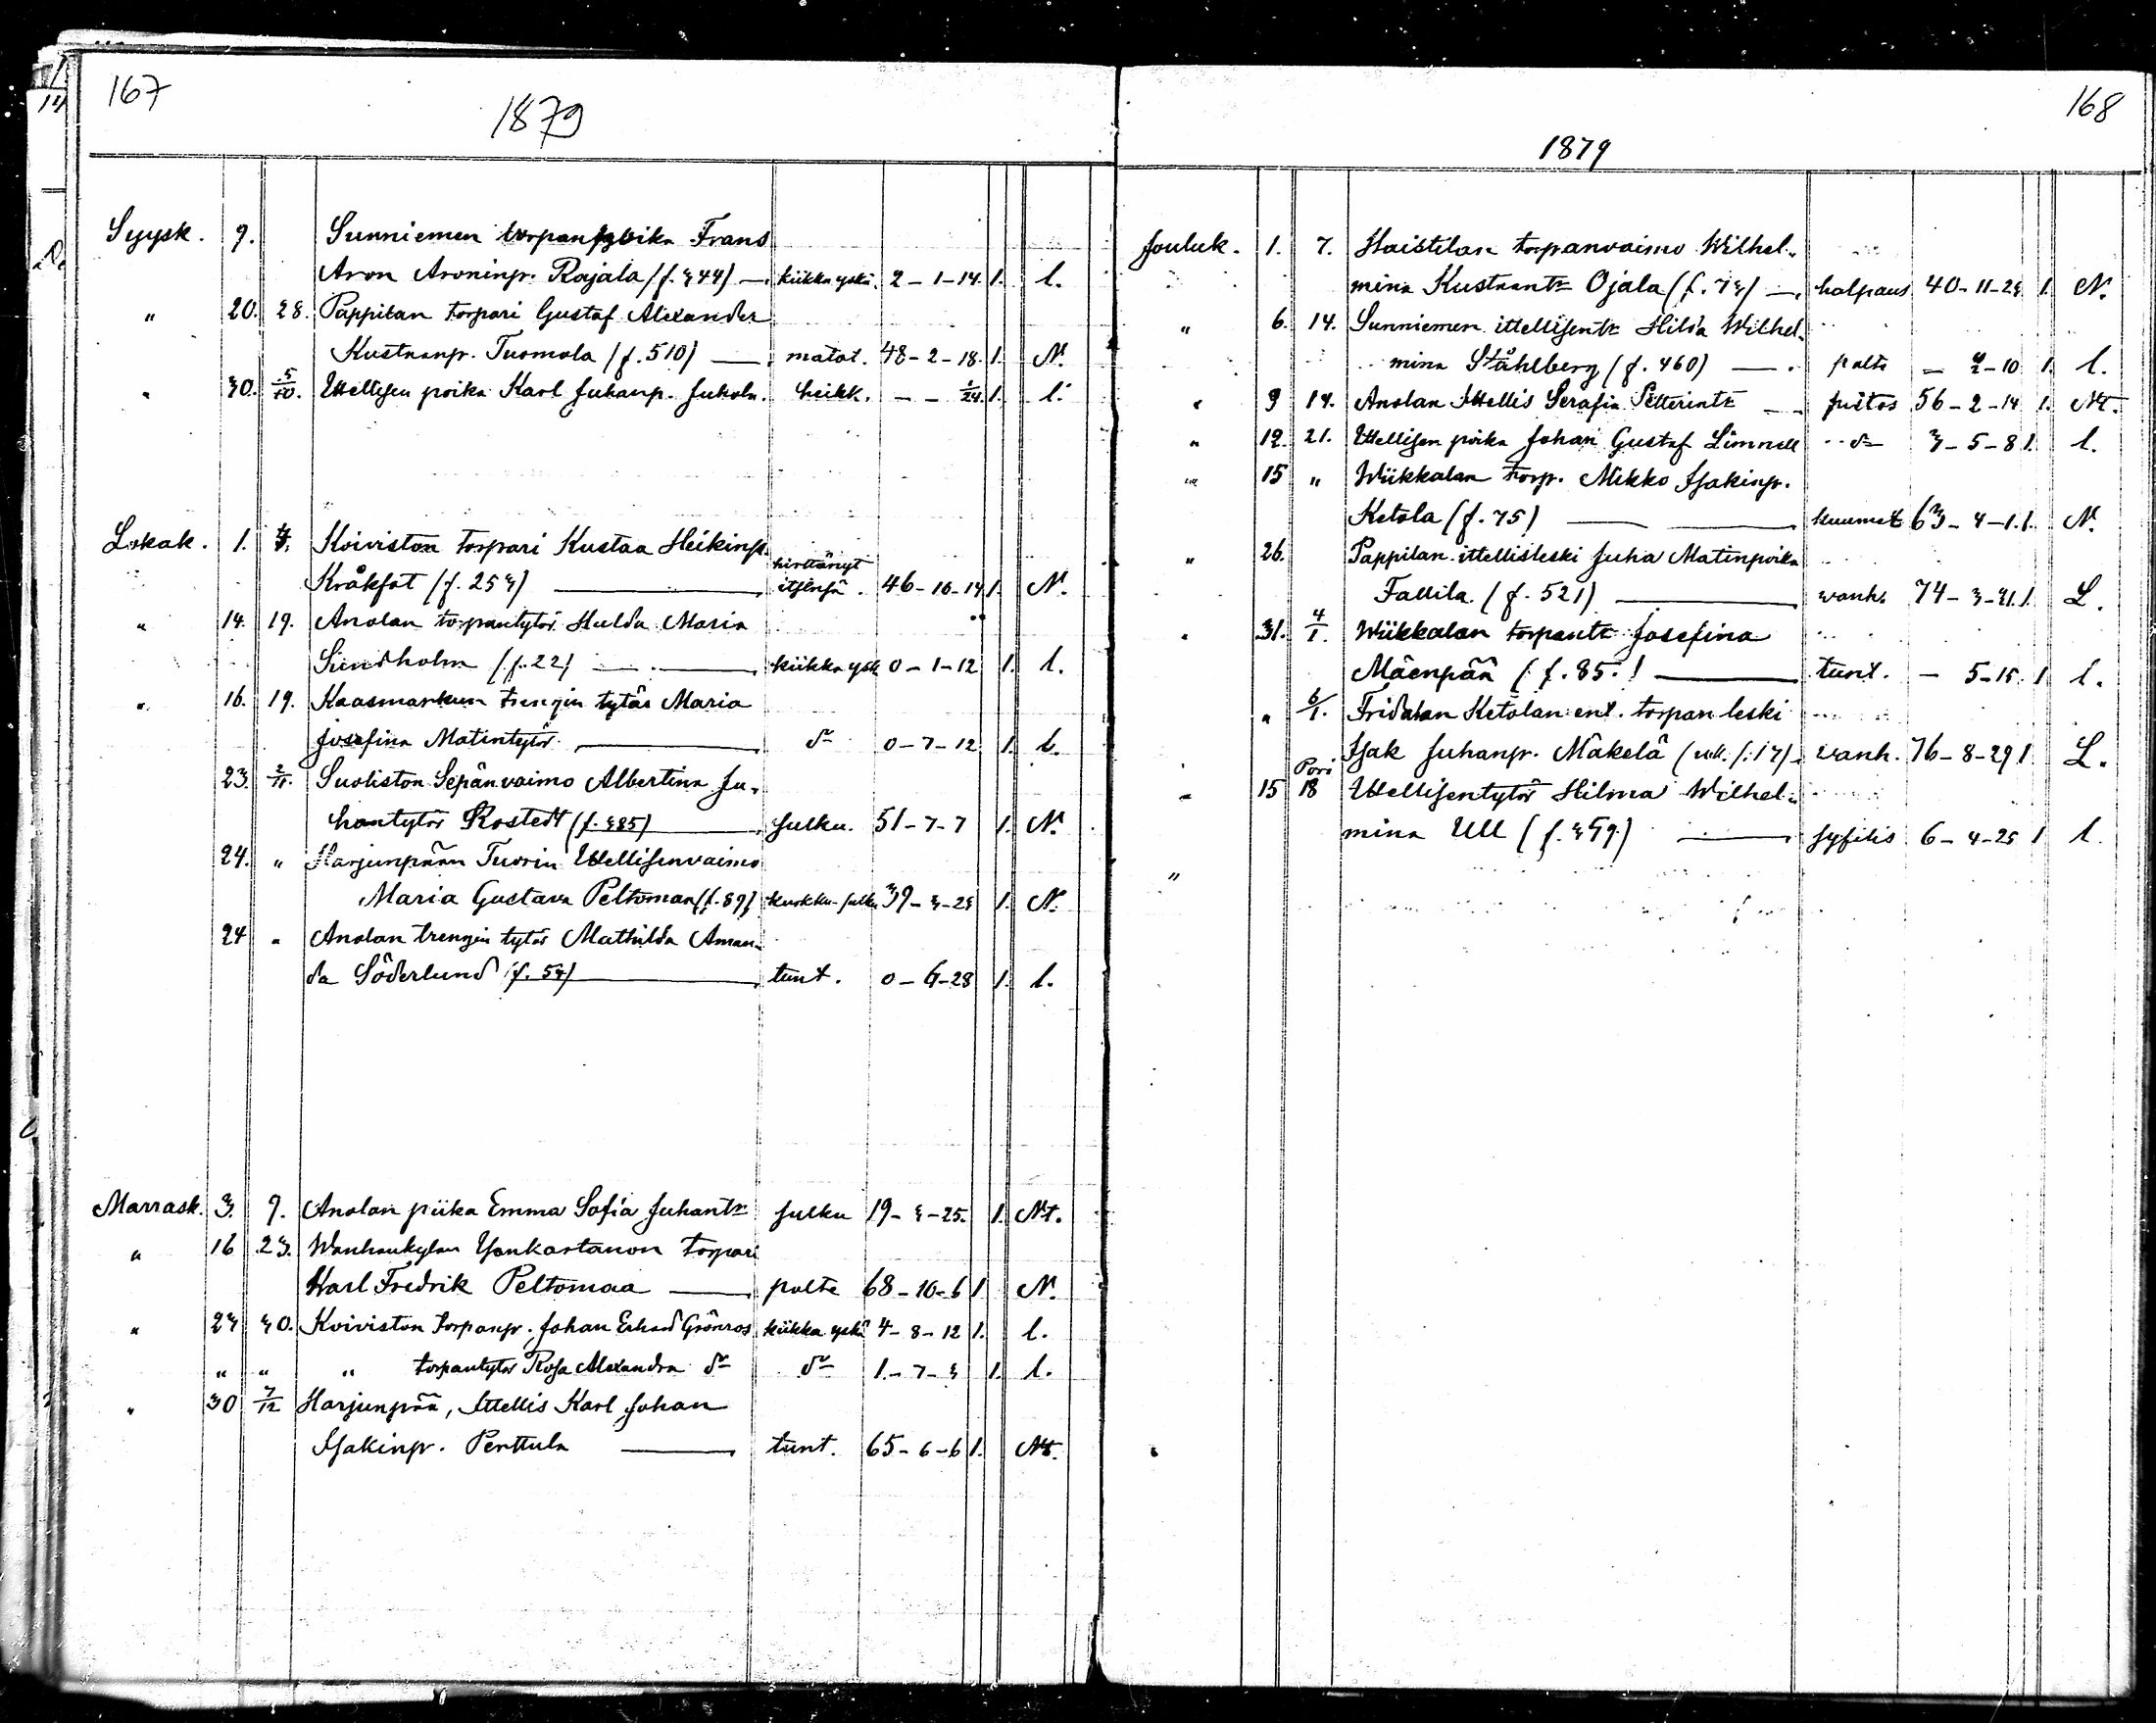 167
1879
Syysk. 9. Sunniemen torpanpoika Frans
Aron Aroninp. Rajala (f. 344) — kiikka yskä. 2-1-14. 1. l.
" 20. 28. Pappilan torpari Gustaf Alexander
Kustaanp. Tuomola (f. 510) — matot. 48-2-18. 1. N.
" 30. 5/10. Ittellisen poika Karl Juhanp. Juhola. heikk. - - 1/24. 1. l.
Lokak. 1. Koiviston torpari Kustaa Heikinp.
hirttänyt
Kråkfot (f. 253) — itsensä. 46-10-14 1. N.
" 14. 19. Anolan torpantytör Hulda Maria
Sundholm (f. 22) — kiikka ysk 0-1-12 1. l.
" 16. 19. Kaasmarkun trengin tytär Maria
Josefina Matintytör — do 0-7-12 1. l.
23. 2/11. Suoliston Sepänvaimo Albertina Ju-
hantytör Rostedt (f. 385) — julku. 51-7-7 1. N.
24. " Harjunpään Tuorin Ittellisenvaimo
Maria Gustava Peltoman (f. 89) kurkku-julku 39-3-23 1. N.
24 " Anolan trengin tytär Mathilda Aman-
da Söderlund (f. 54) — tunt. 0-6-28 1. l.
Marrask. 3. 9. Anolan piika Emma Sofia Juhantr julku 19-3-25. 1. Nt.
" 16 23. Wanhankylan Yonkartanon torpari
Karl Fredrik Peltomaa — polte 68-10-6 1. N.
" 23 30. Koiviston torpanp. Johan Erhard Grönros kiikka yskä 4-8-12 1. l.
" " " torpantytör Rosa Alexandra do do 1-7-3 1. l.
" 30 7/12 Harjunpää, Ittellis Karl Johan
Isakinp. Perttula — tunt. 65-6-6 1. Nt.
168
1879
Jouluk. 1. 7. Haistilan torpanvaimo Wilhel-
mina Kustaantr Ojala (f. 73) — halpaus 40-11-23 1. N.
" 6. 14. Sunniemen ittellisentr Hilda Wilhel-
mina Ståhlberg (f. 460) — polte - 2-10 1. l.
" 9 14. Anolan Ittellis Serafia Petterintr — pistos 56-2-14 1. Nt.
" 12. 21. Ittellisen poika Johan Gustaf Limnell do 3-5-8 1. l.
" 15 " Wiikkalan torp. Mikko Isakinp.
Ketola (f. 75) — kuumet 63-4-1. 1. N.
" 26. Pappilan ittellisleski Juha Matinpoika
Fallila (f. 521) — wanh. 74-3-21. 1. L.
" 31. 4/1. Wiikkalan torpantr Josefina
Mäenpää (f. 85.) — tunt. - 5-15. 1. l.
" 6/1. Fridalan Ketolan ent. torpan leski
Isak Juhanp. Mäkelä wanh. 76-8-29 1. L.
Pori
" 15 18 Ittellisentytör Hilma Wilhel-
mina Ull — syfilis 6-4-25 1. l.
"